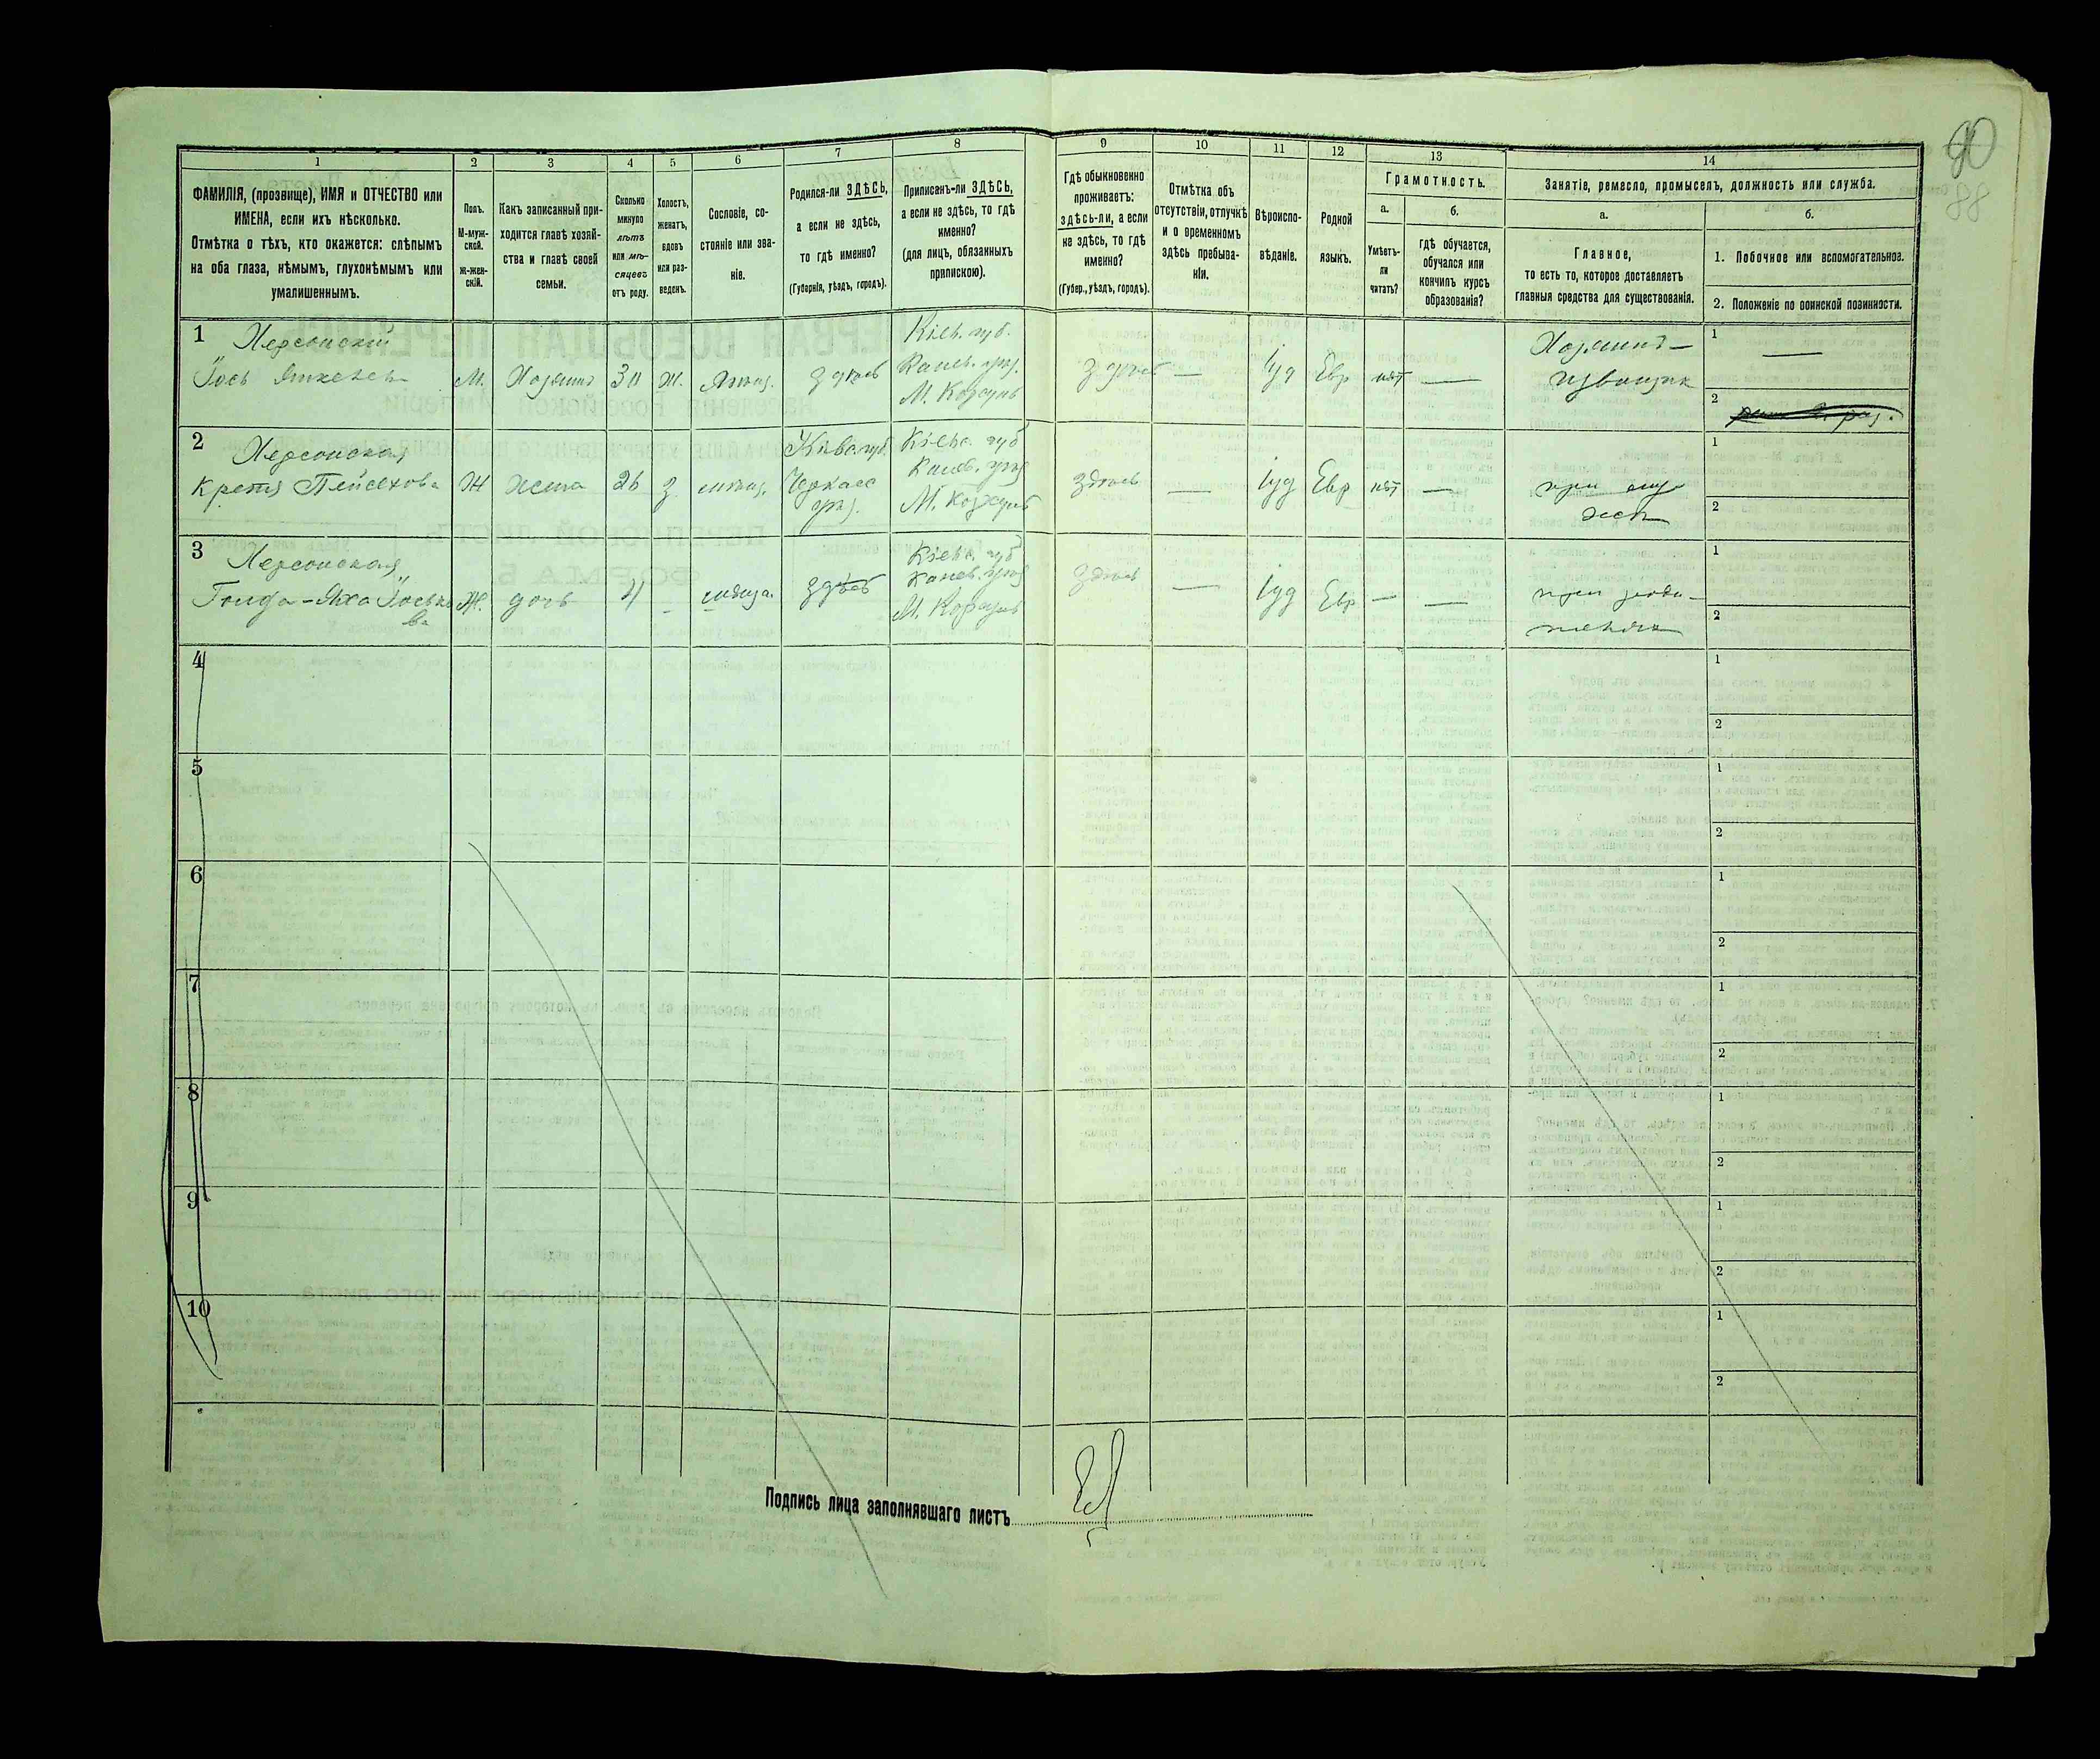 90
88
1
2
3
4
5
6
7
8
9
10
11
12
13
14
ФАМИЛІЯ, (прозвище), ИМЯ и ОТЧЕСТВО или
ИМЕНА, если ихъ нѣсколько.
Отмѣтка о тѣхъ, кто окажется: слѣпымъ
на оба глаза, нѣмымъ, глухонѣмымъ или
умалишеннымъ.
Полъ.
М-муж-
ской.
ж-жен-
скій.
Какъ записанный при-
ходится главѣ хозяй-
ства и главѣ своей
семьи.
Сколько
минуло
лѣтъ
или мѣ-
сяцевъ
отъ роду.
Холостъ,
женатъ,
вдовъ
или раз-
веденъ.
Сословіе, со-
стояніе или зва-
ніе.
Родился-ли ЗДѢСЬ,
а если не здѣсь,
то гдѣ именно?
(Губернія, уѣздъ, городъ).
Приписанъ-ли ЗДѢСЬ,
а если не здѣсь, то гдѣ
именно?
(для лицъ, обязанныхъ
припискою).
Гдѣ обыкновенно
проживаетъ:
здѣсь-ли, а если
не здѣсь, то гдѣ
именно?
(Губер., уѣздъ, городъ).
Отмѣтка объ
отсутствіи, отлучкѣ
и о временномъ
здѣсь пребыва-
ніи.
Вѣроиспо-
вѣданіе.
Родной
языкъ.
Грамотность.
а.
Умѣетъ-
ли
читать?
б.
гдѣ обучается,
обучался или
кончилъ курсъ
образованія?
Занятіе, ремесло, промыселъ, должность или служба.
а.
Главное,
то есть то, которое доставляетъ
главныя средства для существованія.
б.
1. Побочное или вспомогательное.
2. Положеніе по воинской повинности.
1 Херсонскій
Іось
М. Хозяинъ 30 ж. здѣсь
Кіев. губ.
Канев. уѣз.
М. Козинъ
здѣсь — Іуд Евр нѣт —
Хозяинъ —
извощик
1 —
2
2 Херсонская
Крейня Пейсахова
Ж жена 26 з. мѣщ.
Кіев. губ.
Черкасс
уѣз.
Кіевс. губ
Канев. уѣз
М. Козинъ
здѣсь — Іуд Евр нѣт —
при муже
1
2
3 Херсонская
Голда-Яха Іосько
ва
Ж. дочь 4 — здѣсь
Кіевс. губ
Канев. уѣз
М. Козинъ
здѣсь — Іуд Евр — —
при роди-
теляхъ
1
2
4
1
2
5
1
2
6
1
2
7
1
2
8
1
2
9
1
2
10
1
2
Подпись лица заполнявшаго листъ